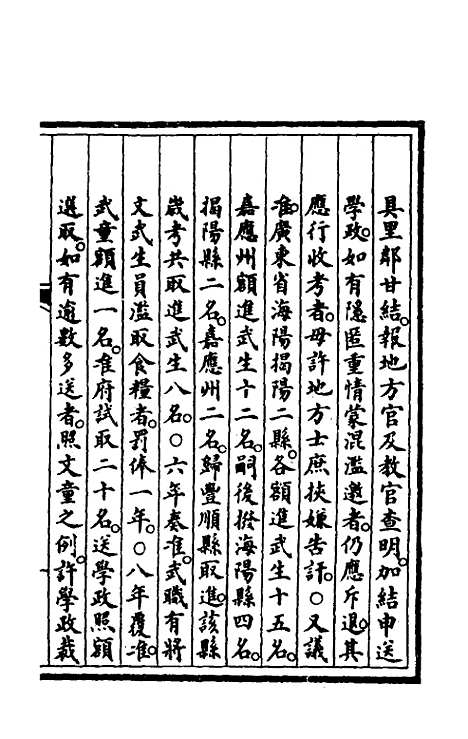 具里鄰甘結。報地方官及教官查明。加結申送
學政。如有隱匿重情蒙混濫邀者。仍應斥退。其
應行收考者。毋許地方士庶挾嫌告訐。○又議
准。廣東省海陽揭陽二縣。各額進武生十五名。
嘉應州額進武生十二名。嗣後撥海陽縣四名。
揭陽縣二名。嘉應州二名。歸豐順縣取進。該縣
歲考共取進武生八名。○六年奏准。武職有將
文武生員濫取食糧者。罰俸一年。○八年覆准。
武童額進一名。准府試取二十名。送學政照額
選取。如有逾數多送者。照文童之例。許學政裁